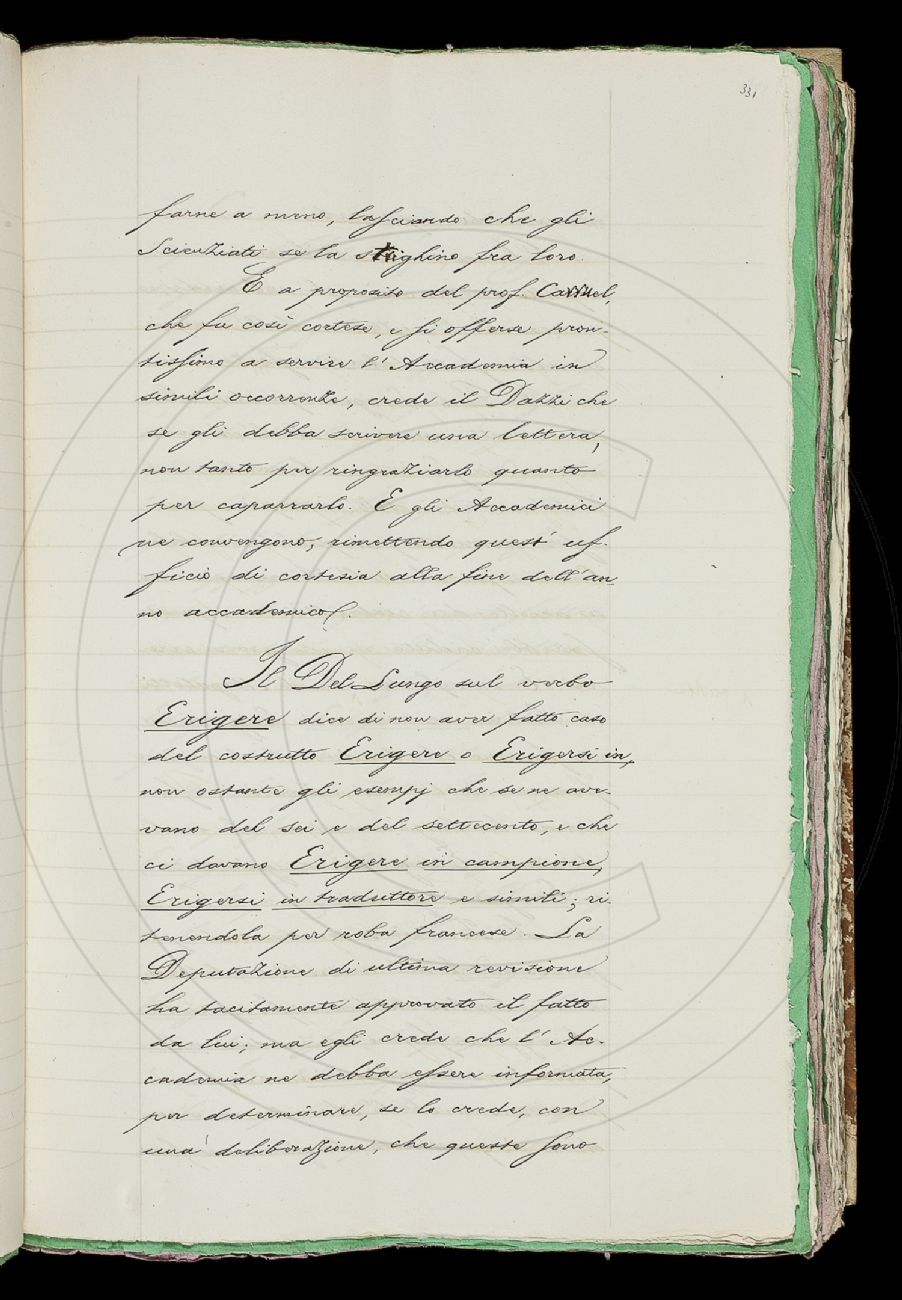 331
farne a meno, lasciando che gli
Scienziati se la strighino fra loro.
E a proposito del prof. Carruel,
che fu così cortese, e si offerse pron-
tissimo a servire l'Accademia in
simili occorrenze, crede il Dazzi che
se gli debba scrivere una lettera,
non tanto per ringraziarlo quanto
per caparrarlo. E gli Accademici
ne convengono; rimettendo quest'uf-
ficio di cortesia alla fine dell'an-
no accademico.
Il Del Lungo sul verbo
Erigere dice di non aver fatto caso
del costrutto Erigere o Erigersi in,
non ostante gli esempj che se ne ave-
vano del sei e del settecento, e che
ci davano Erigere in campione,
Erigersi in traduttore e simili; ri-
tenendola per roba francese. La
Deputazione di ultima revisione
ha tacitamente approvato il fatto
da lui; ma egli crede che l'Ac-
cademia ne debba essere informata,
per determinare, se lo crede, con
una deliberazione, che queste sono